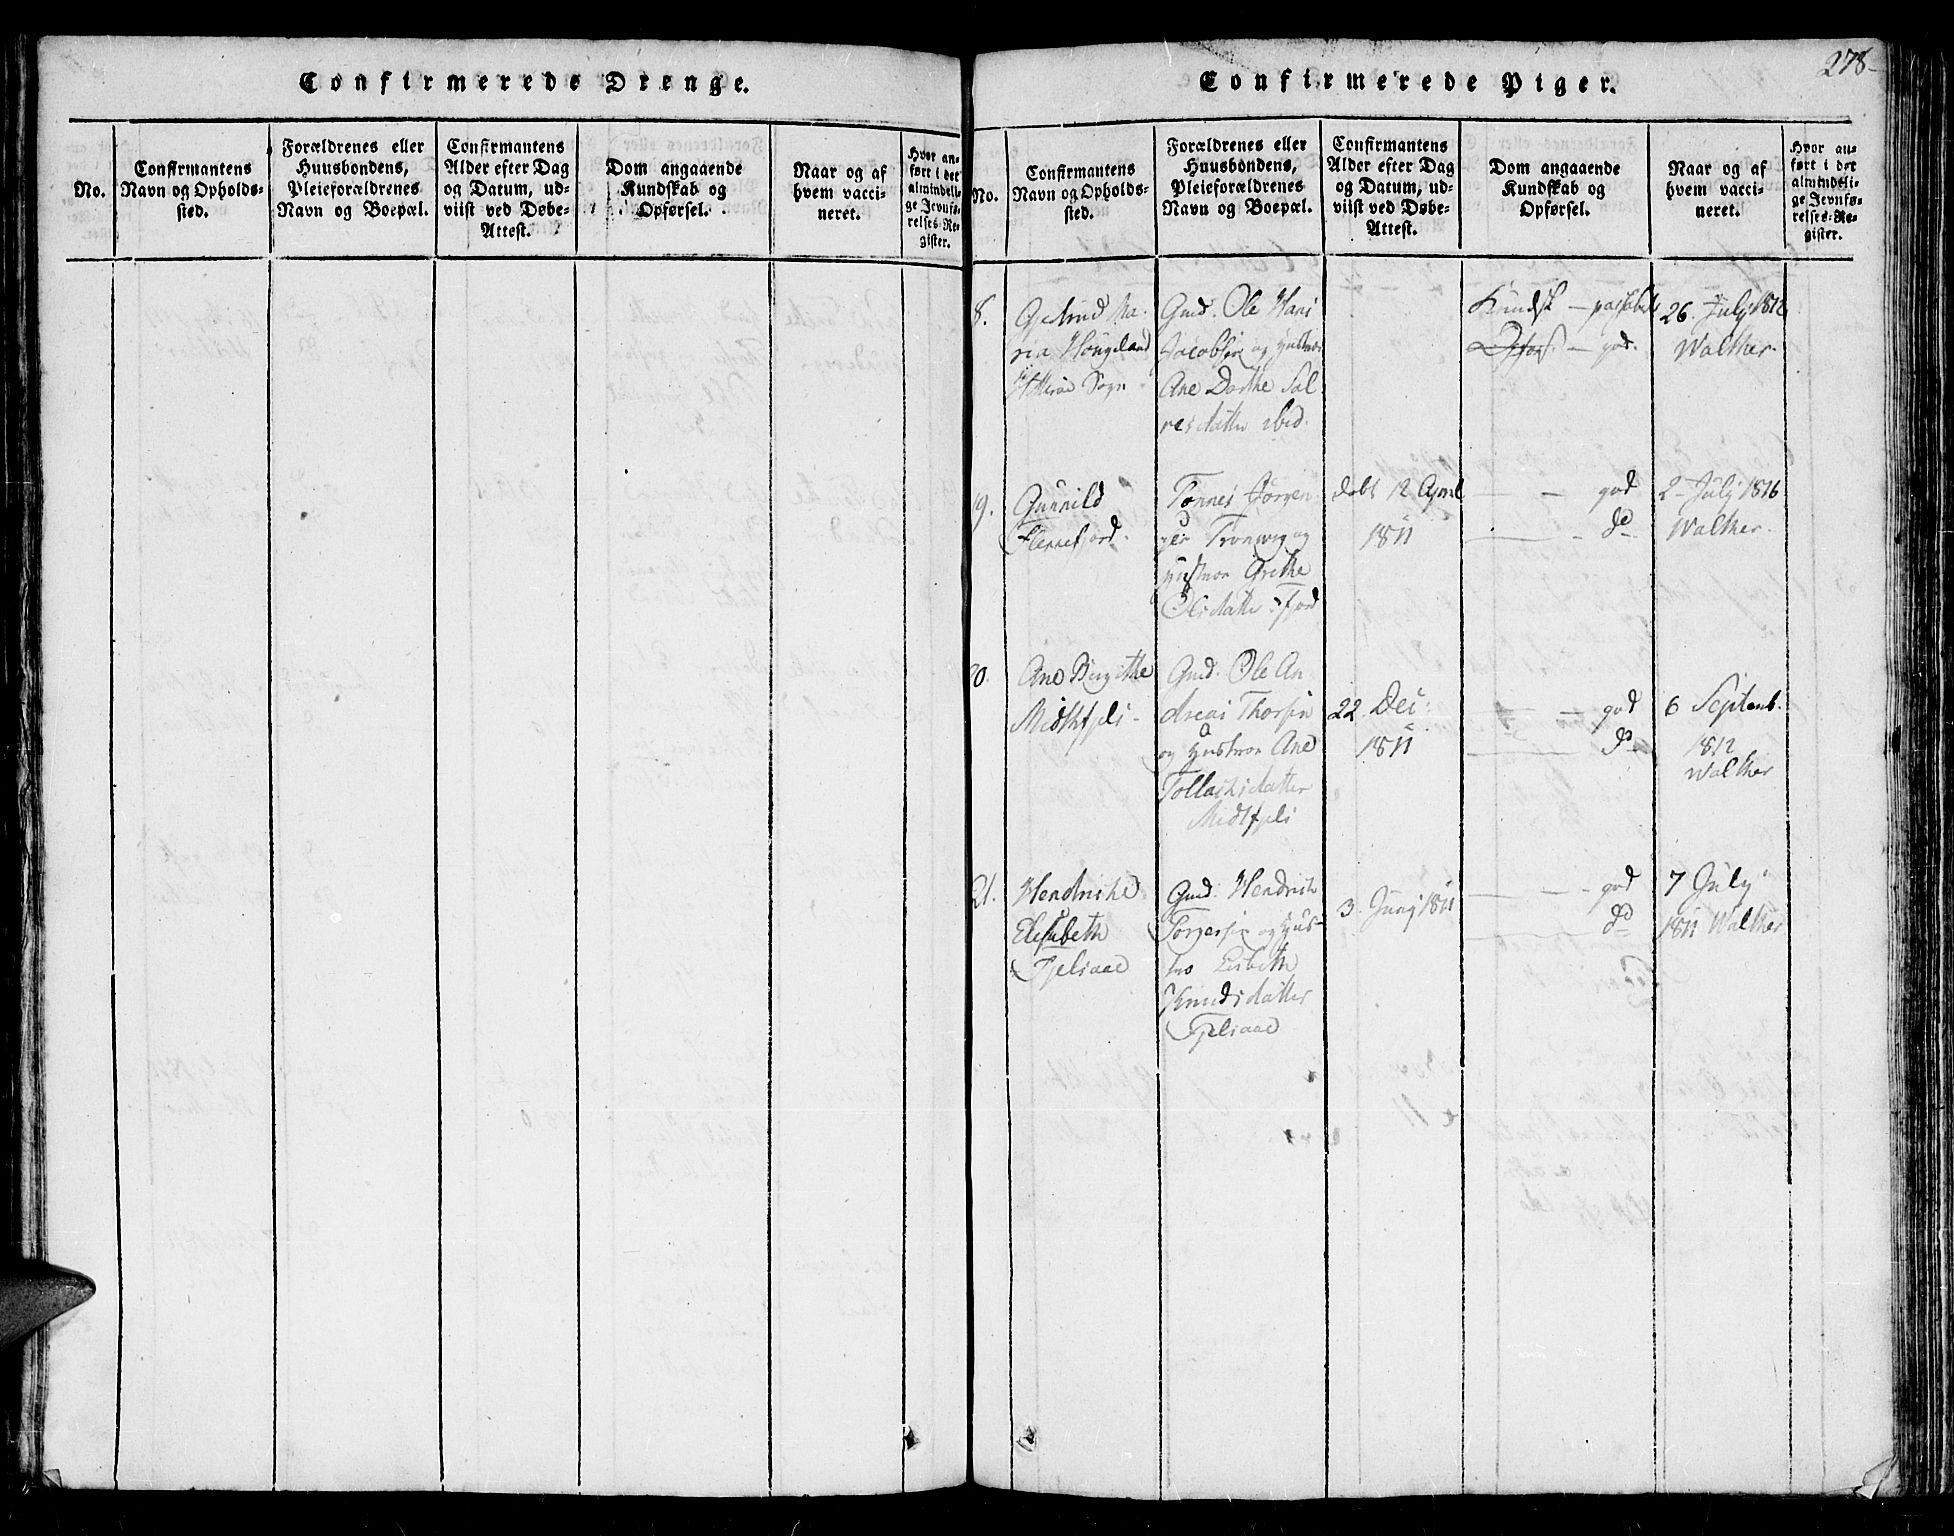 278
Confirmerede Drenge.
No.
Confirmantens
Navn og Opholds-
sted.
Forældrenes eller
Huusbondens,
Pleieforældrenes
Navn og Boepæl.
Confirmantens
Alder efter Dag
og Datum, ud-
viist ved Døbe-
Attest.
Dom angaaende
Kundskab og
Opførsel.
Naar og af
hvem vacci-
neret.
Hvor an-
ført i det
almindeli-
ge Jevnfø-
relses-Re-
gister.
Confirmerede Piger.
No.
Confirmantens
Navn og Opholds-
sted.
Forældrenes eller
Huusbondens,
Pleieforældrenes
Navn og Boepæl.
Confirmantens
Alder efter Dag
og Datum, ud-
viist ved Døbe-
Attest.
Dom angaaende
Kundskab og
Opførsel.
Naar og af
hvem vacci-
neret.
Hvor an-
ført i det
almindeli-
ge Jevnfø-
relses-Re-
gister.
8.
Gedrud Ma-
ria Hougeland
Hitterøe Sogn
Gmd. Ole Hans
Jacobsen og Hustroe
Ane Dorthe Sal
ves datter ibid.
Kundsk — passabel
Opførs. — god.
26 July 1812
Walther.
9.
Gunnild
Flekkefjord.
Tønnes Jørgen
sen Tronvig og
Hustroe Grethe
Olsdatter
døbt 12 April
1811
— — god
— — do
2 July 1816
Walther.
20.
Ane Birgithe
Midtfjeli -
Gmd. Ole An
dreas Thorsen
og Hustroe Ane
Tollachsdatter
Midtfjeli
22. Dec:
1811
— — god
— do
6 Septemb.
1812
Walther
21.
Hendrikke
Elisabeth
Fjelsaae
Gmd. Hendrich
Torgersen og Hus-
troe Lisbeth
Knudsdatter
Fjelsaae
3. Junj 1811
— — god
— do
7 July
1811 Walther